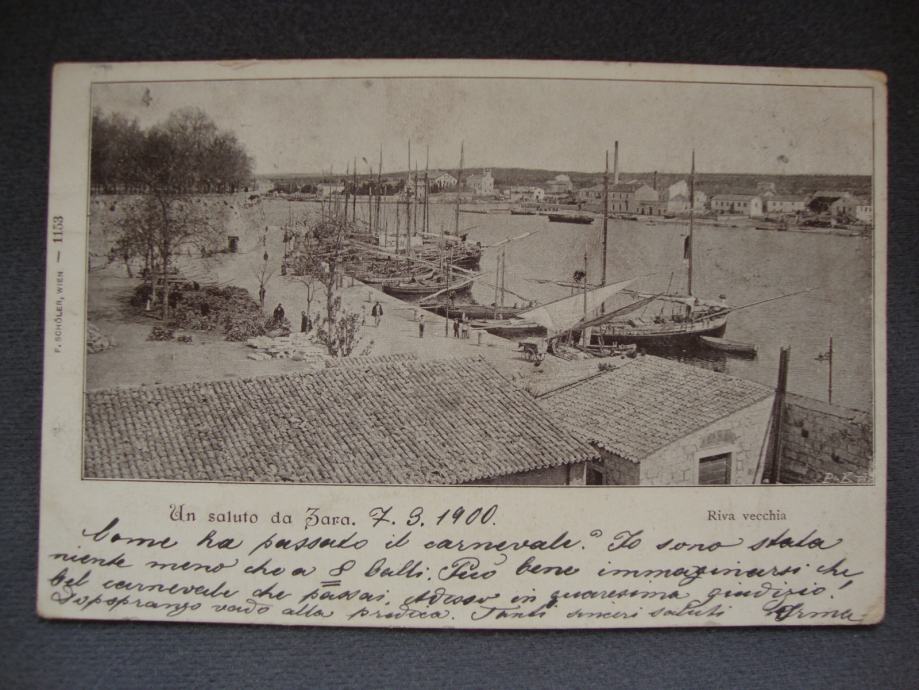 F. SCHÖLER, WIEN — 1153
Un saluto da Zara. 7. 3. 1900.
Riva vecchia
Come ha passato il carnevale? Io sono stata
niente meno che a 8 balli. Può bene immaginarsi che
bel carnevale che passai. Adesso in quaresima giudizio!
Dopopranzo vado alla predica. Tanti sinceri saluti Irma